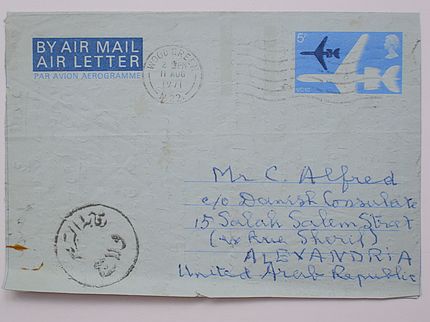 BY AIR MAIL
AIR LETTER
PAR AVION AEROGRAMME
WOOD GREEN
11 AUG
1971
N.22
5p
VC10
Mr C. Alfred
c/o Danish Consulate
15 Salah Salem Street
(ex Rue Sherif)
ALEXANDRIA
United Arab Republic